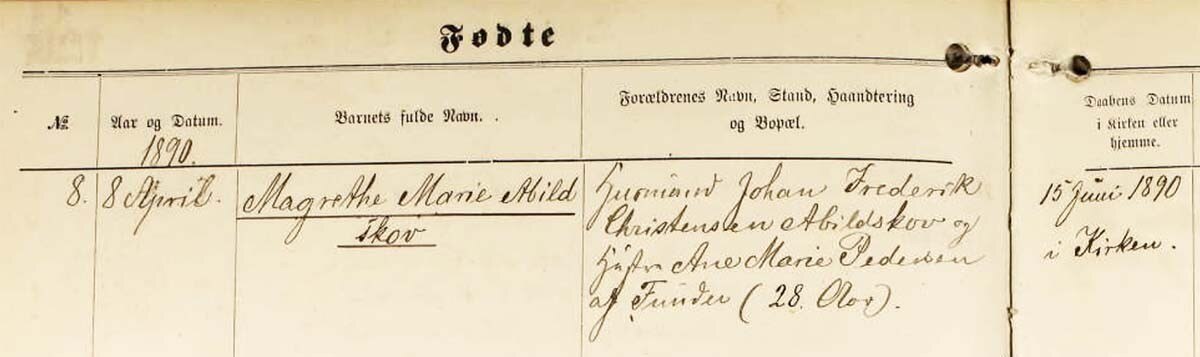 Fødte
№
Aar og Datum.
1890.
Barnets fulde Navn.
Forældrenes Navn, Stand, Haandtering
og Bopæl.
Daabens Datum
i Kirken eller
hjemme.
8.
8 April.
Magrethe Marie Abild
skov
Husmand Johan Frederik
Christensen Abildskov og
Hustru Ane Marie Pedersen
af Funder (28. Aar).
15 Juni 1890
i Kirken.